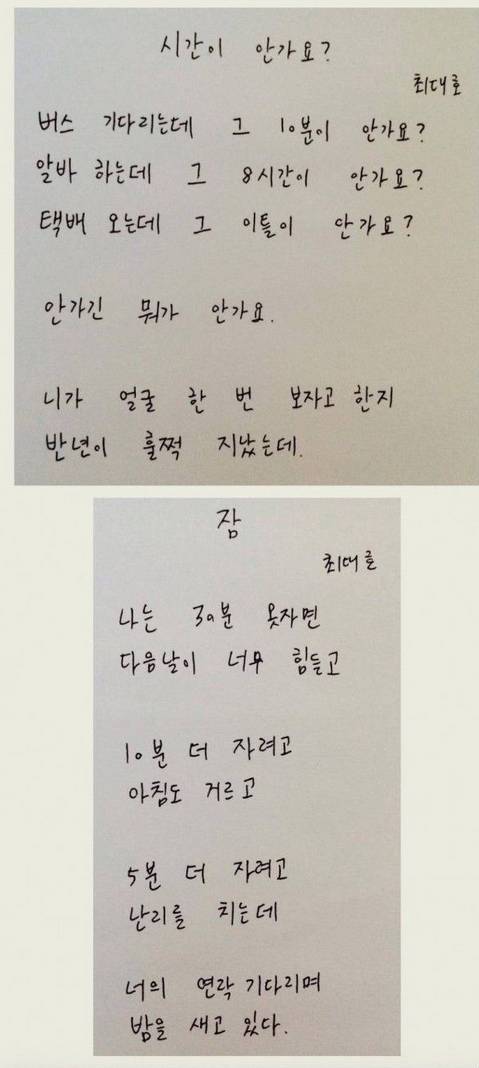 시간이 안가요?
최대호
버스 기다리는데 그 10분이 안가요?
알바 하는데 그 8시간이 안가요?
택배 오는데 그 이틀이 안가요?
안가긴 뭐가 안가요.
니가 얼굴 한 번 보자고 한지
반년이 훌쩍 지났는데.
잠
최대호
나는 30분 못자면
다음날이 너무 힘들고
10분 더 자려고
아침도 거르고
5분 더 자려고
난리를 치는데
너의 연락 기다리며
밤을 새고 있다.